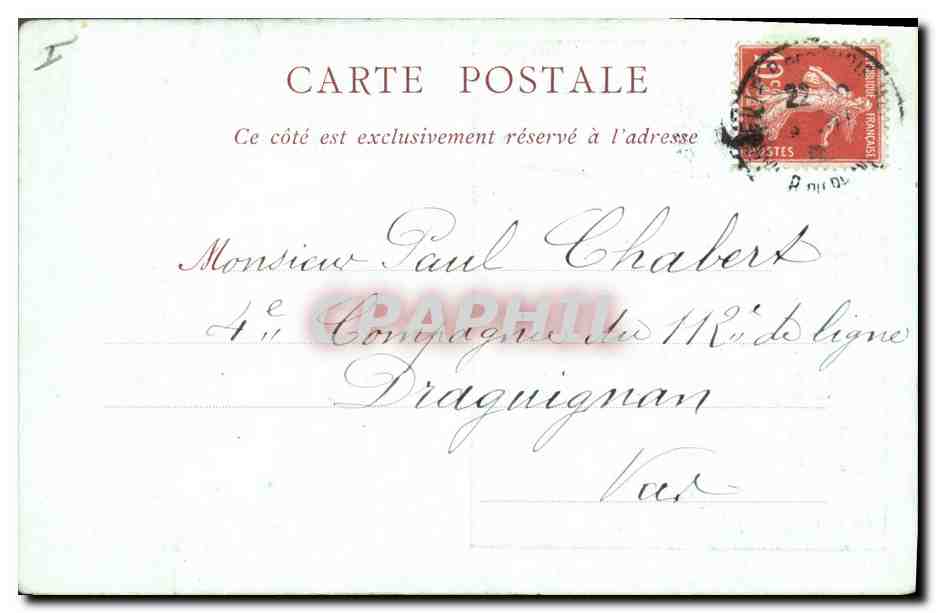 I
CARTE POSTALE
Ce côté est exclusivement réservé à l'adresse
10c
REPUBLIQUE FRANÇAISE
POSTES
22
Monsieur Paul Chabert
4e Compagnie du 112e de ligne
CPAPHIL
Draguignan
Var